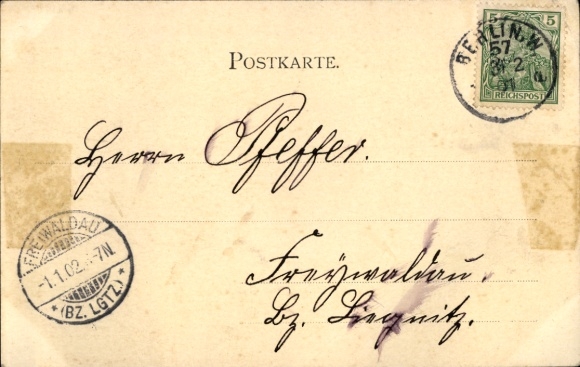 POSTKARTE.
5 5
REICHSPOST
BERLIN. W
57
Herrn Pfeffer.
Freywaldau.
Bz. Liegnitz.
FREIWALDAU
-1.1.02. -7N
* (BZ. LGTZ.) *